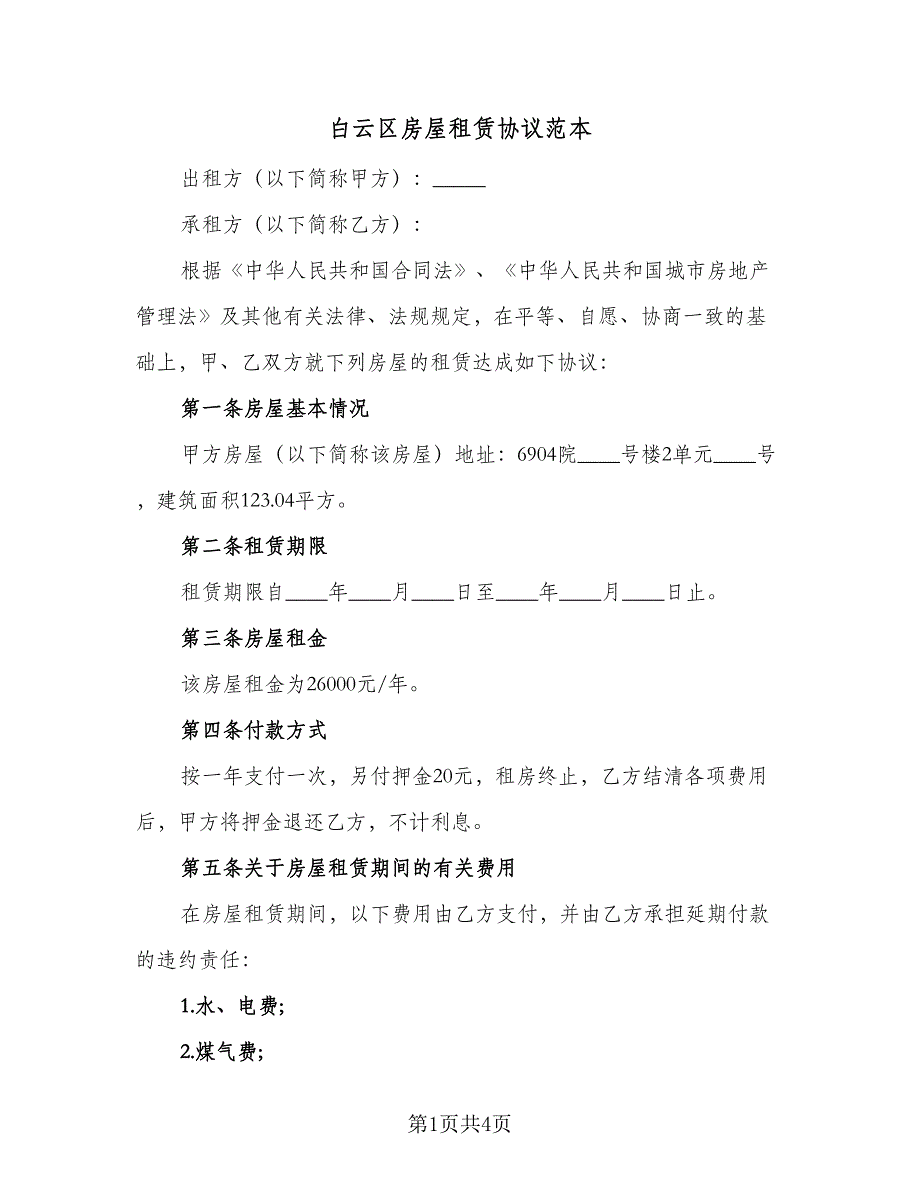 白云区房屋租赁协议范本
出租方（以下简称甲方）：_____
承租方（以下简称乙方）：
根据《中华人民共和国合同法》、《中华人民共和国城市房地产
管理法》及其他有关法律、法规规定，在平等、自愿、协商一致的基
础上，甲、乙双方就下列房屋的租赁达成如下协议：
第一条房屋基本情况
甲方房屋（以下简称该房屋）地址：6904院____号楼2单元____号
，建筑面积123.04平方。
第二条租赁期限
租赁期限自____年____月____日至____年____月____日止。
第三条房屋租金
该房屋租金为26000元/年。
第四条付款方式
按一年支付一次，另付押金20元，租房终止，乙方结清各项费用
后，甲方将押金退还乙方，不计利息。
第五条关于房屋租赁期间的有关费用
在房屋租赁期间，以下费用由乙方支付，并由乙方承担延期付款
的违约责任：
1.水、电费;
2.煤气费;
第1页共4页